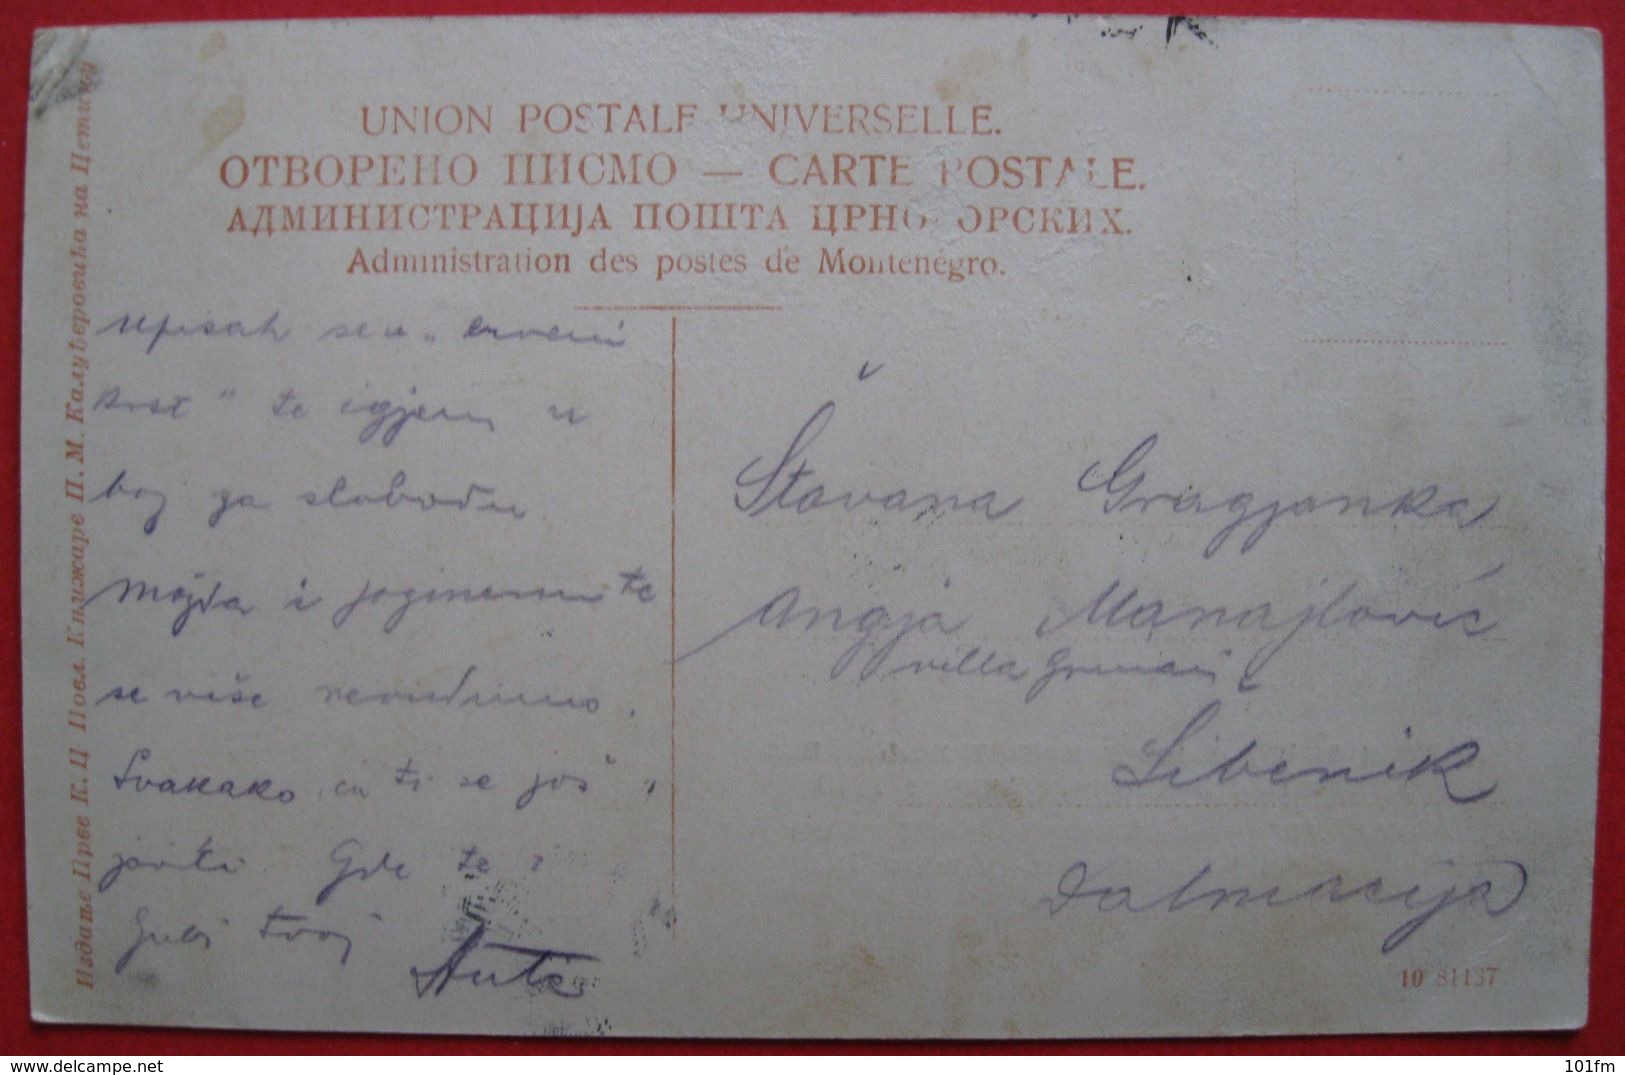 UNION POSTALE UNIVERSELLE.
ОТВОРЕНО ПИСМО — CARTE POSTALE.
АДМИНИСТРАЦИЈА ПОШТА ЦРНОГОРСКИХ.
Administration des postes de Monténégro.
Издање Прве К. Ц Повл. Књижаре П. М. Калуђеровића на Цетињу
Upisah se u „ crveni
krst " te igjem u
boj za slobodu
Možda i poginem te
se više nevidimo.
Svakako ću ti se još
javiti. Gde te i
ljubi tvoj
Ante
Štovana Gragjanka
Angja Manajlović
villa
Šibenik
Dalmacija
10 81137
www.delcampe.net
101fm